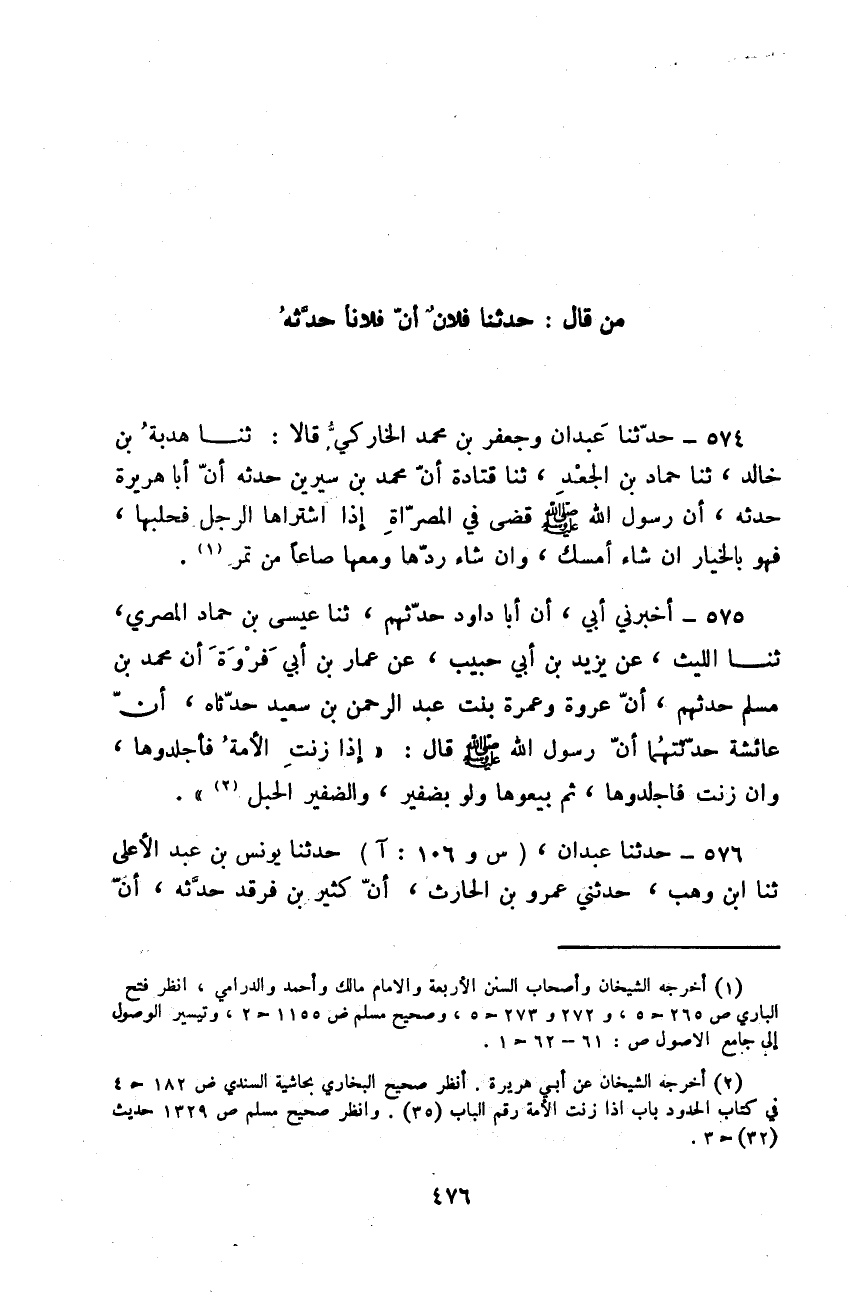 من قال : حدثنا فلانٌ أنّ فلاناً حدَّثهُ
٥٧٤ – حدّثنا عَبدان وجعفر بن محمد الخاركيُّ قالا : ثنا هدبةُ بن
خالد ، ثنا حماد بن الجعْدِ ، ثنا قتادة أنّ محمد بن سيرين حدثه أنّ أبا هريرة
حدثه ، أن رسول الله ﷺ قضى في المصرّاةِ إذا اشتراها الرجل فحلبها ،
فهو بالخيار ان شاء أمسك ، وان شاء ردّها ومعها صاعاً من تمرٍ (١) .
٥٧٥ – أخبرني أبي ، أن أبا داود حدّثهم ، ثنا عيسى بن حماد المصري ،
ثنا الليث ، عن يزيد بن أبي حبيب ، عن عمار بن أبي فَرْوَةَ أن محمد بن
مسلم حدثهم ، أنّ عروة وعمرة بنت عبد الرحمن بن سعيد حدّثاه ، أنّ
عائشة حدّثتهُما أنّ رسول الله ﷺ قال : « إذا زنتِ الأمةُ فأجلدوها ،
وان زنت فاجلدوها ، ثم بيعوها ولو بضفير ، والضفير الحبل (٢) » .
٥٧٦ – حدثنا عبدان ، ( س و ١٠٦ : آ ) حدثنا يونس بن عبد الأعلى
ثنا ابن وهب ، حدثني عمرو بن الحارث ، أنّ كثير بن فرقد حدَّثه ، أنّ
(١) أخرجه الشيخان وأصحاب السنن الأربعة والامام مالك وأحمد والدرامي ، انظر فتح
الباري ص ٢٦٥ ح ٥ ، و ٢٧٢ و ٢٧٣ ح ٥ ، وصحيح مسلم ص ١١٥٥ ح ٢ ، وتيسير الوصول
إلى جامع الاصول ص : ٦١ – ٦٢ ح ١ .
(٢) أخرجه الشيخان عن أبي هريرة . أنظر صحيح البخاري بحاشية السندي ص ١٨٢ ح ٤
في كتاب الحدود باب اذا زنت الأمة رقم الباب (٣٥) . وانظر صحيح مسلم ص ١٣٢٩ حديث
(٣٢) ح ٣ .
٤٧٦